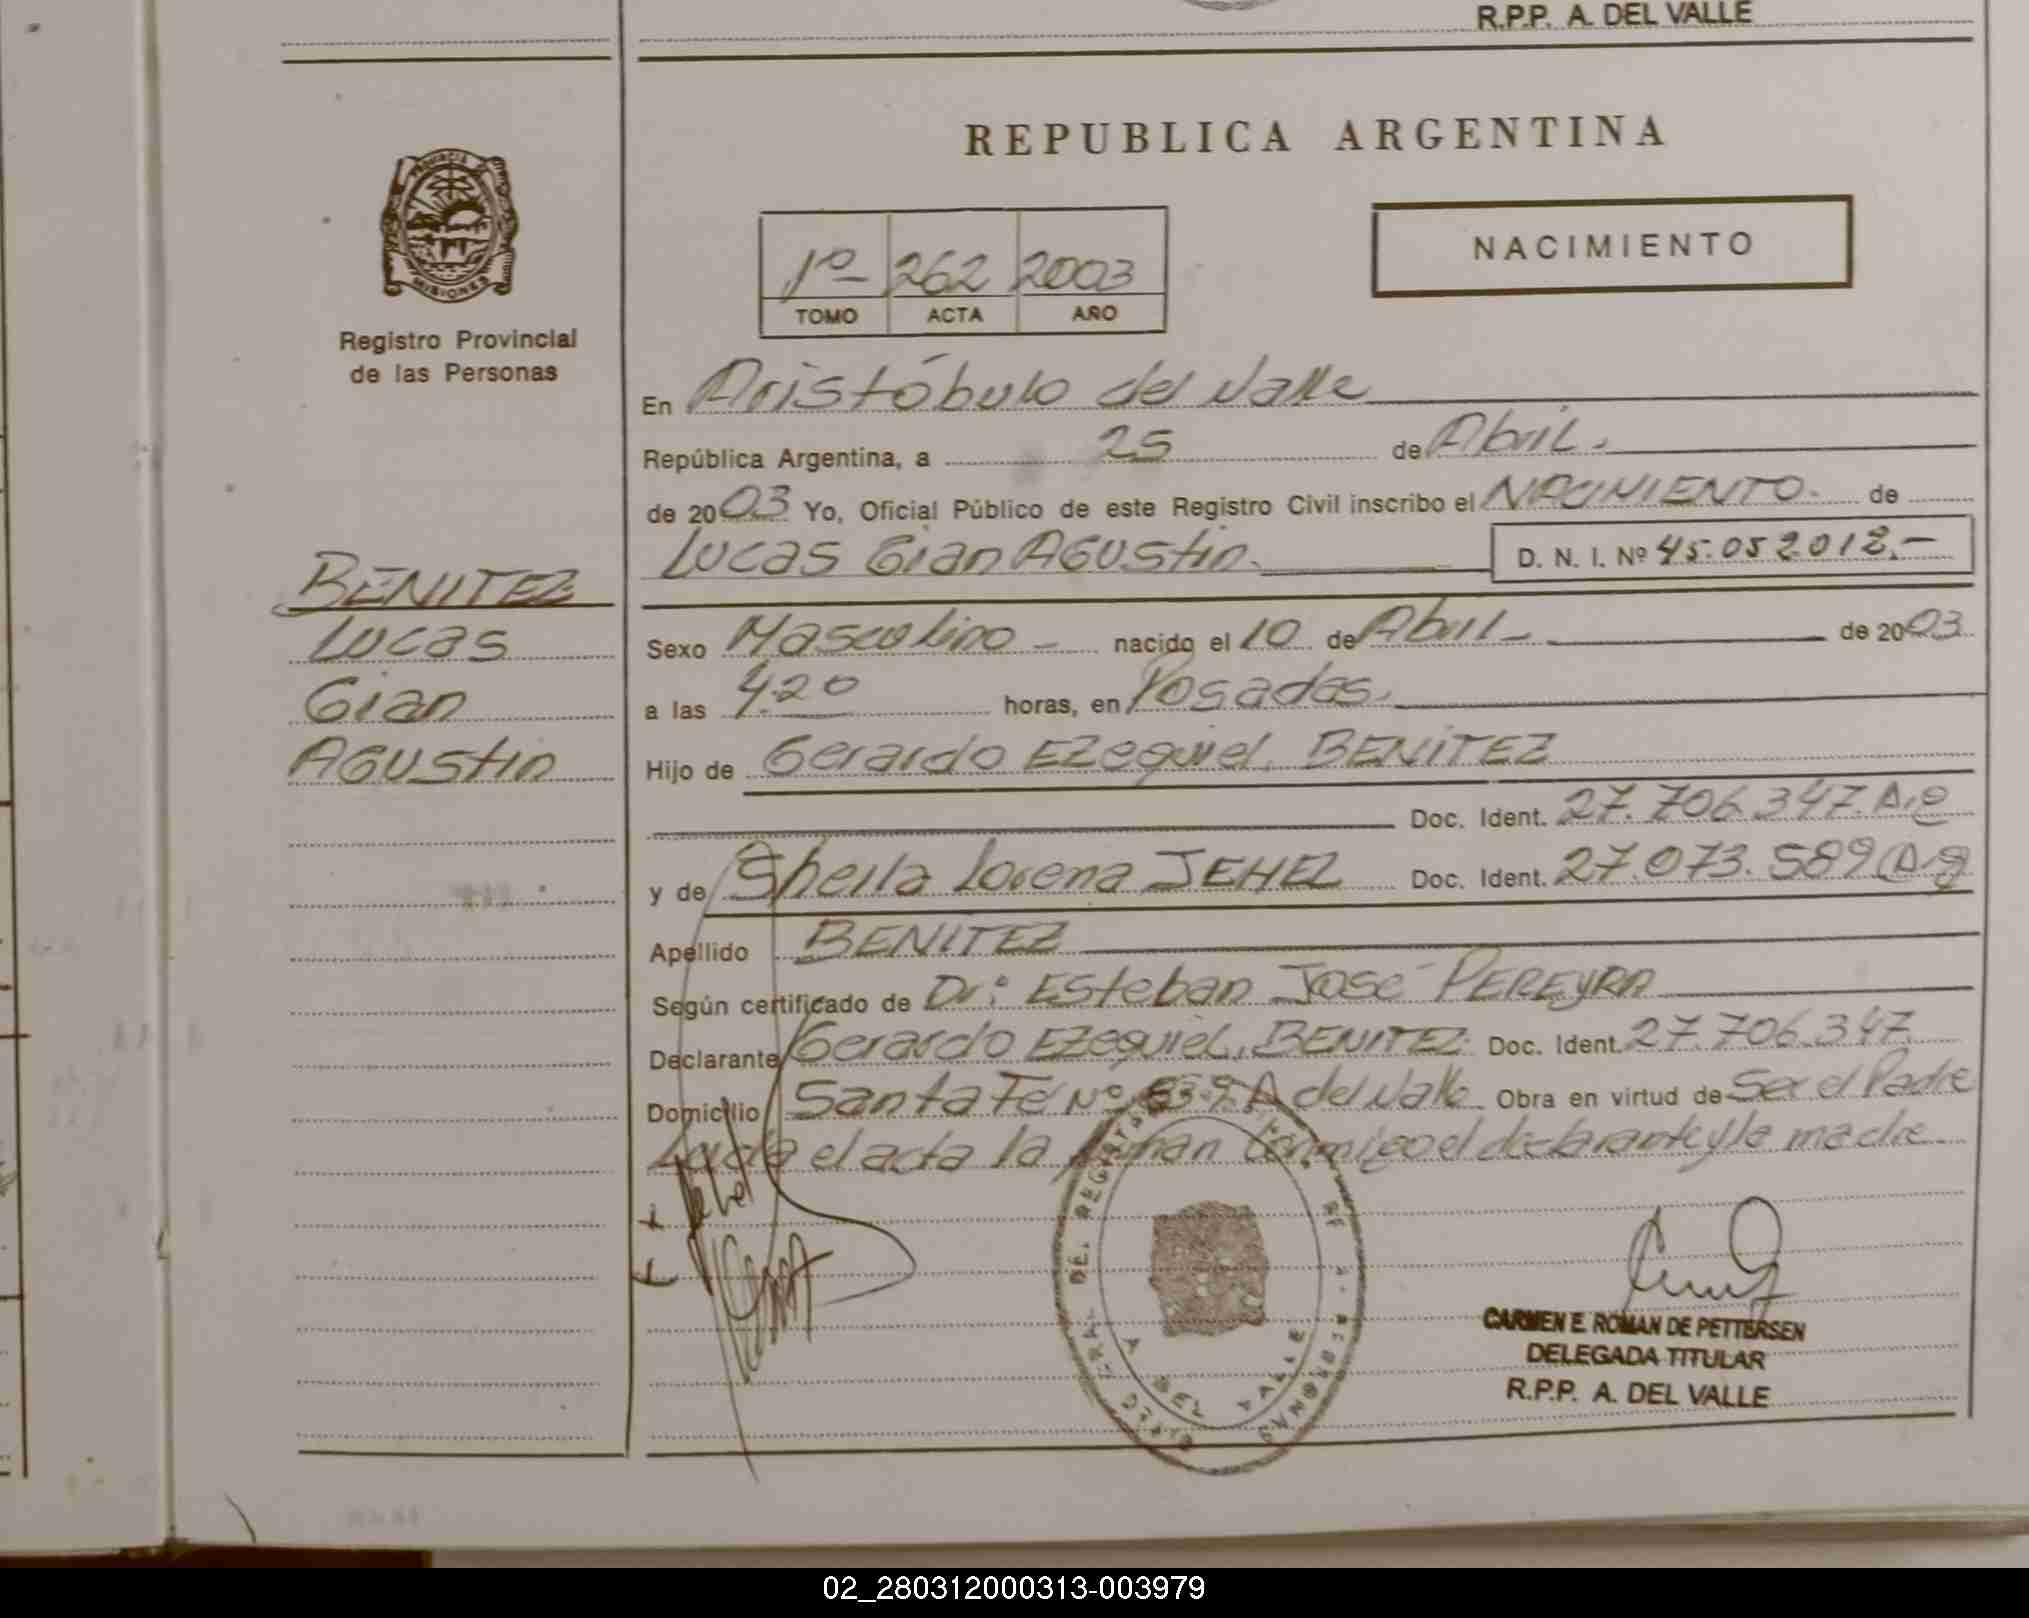 R.P.P. A. DEL VALLE
REPUBLICA ARGENTINA
PROVINCIA DE
MISIONES
Registro Provincial
de las Personas
1º 262 2003
TOMO ACTA AÑO
NACIMIENTO
En Aristóbulo del Valle
República Argentina, a 25 de Abril.
de 2003 Yo, Oficial Público de este Registro Civil inscribo el NACIMIENTO. de
Lucas Gian Agustin. D. N. I. Nº 45.052.012.-
BENITEZ
Lucas
Gian
Agustin
Sexo Masculino - nacido el 10 de Abril - de 2003
a las 4.20 horas, en Posadas.
Hijo de Gerardo Ezequiel. BENITEZ
Doc. Ident. 27.706.347.
y de Sheila Lorena JEHEL Doc. Ident. 27.073.589
Apellido BENITEZ
Según certificado de Dr: Esteban José PEREYRA
Declarante Gerardo Ezequiel, BENITEZ. Doc. Ident. 27.706.347.
Domicilio Santa Fé Nº A del Valle Obra en virtud de Ser el Padre
Leida el acta la firman conmigo el declarante y la madre
A DEL VALLE
CARMEN E. ROMAN DE PETTERSEN
DELEGADA TITULAR
R.P.P. A. DEL VALLE
02_280312000313-003979